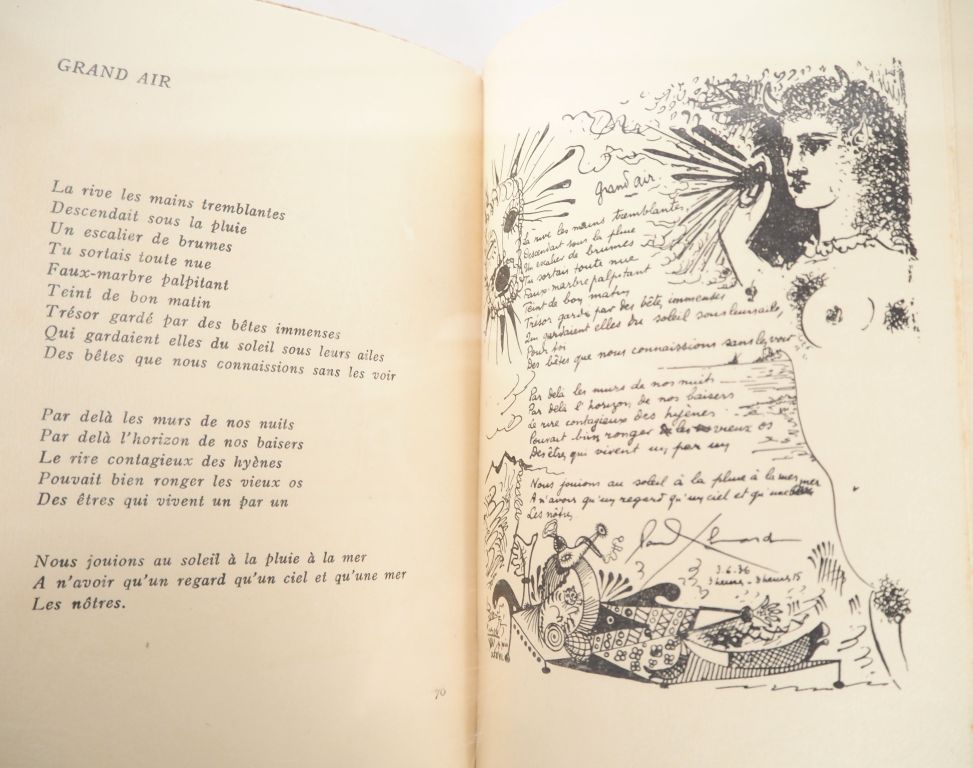 GRAND AIR
La rive les mains tremblantes
Descendait sous la pluie
Un escalier de brumes
Tu sortais toute nue
Faux-marbre palpitant
Teint de bon matin
Trésor gardé par des bêtes immenses
Qui gardaient elles du soleil sous leurs ailes
Des bêtes que nous connaissions sans les voir
Par delà les murs de nos nuits
Par delà l'horizon de nos baisers
Le rire contagieux des hyènes
Pouvait bien ronger les vieux os
Des êtres qui vivent un par un
Nous jouions au soleil à la pluie à la mer
A n'avoir qu'un regard qu'un ciel et qu'une mer
Les nôtres.
70
Grand air
La rive les mains tremblantes
Descendait sous la pluie
Un escalier de brumes
Tu sortais toute nue
Faux-marbre palpitant
Teint de bon matin
Trésor gardé par des bêtes immenses
Qui gardaient elles du soleil sous leurs ailes
Pour toi
Des bêtes que nous connaissions sans les voir
Par delà les murs de nos nuits
Par delà l'horizon de nos baisers
Le rire contagieux des hyènes
Pouvait bien ronger les vieux os
Des êtres qui vivent un par un
Nous jouions au soleil à la pluie à la mer
A n'avoir qu'un regard qu'un ciel et qu'une mer
Les nôtres
Paul Eluard
3.6.36
3 heures - 3 heures 15